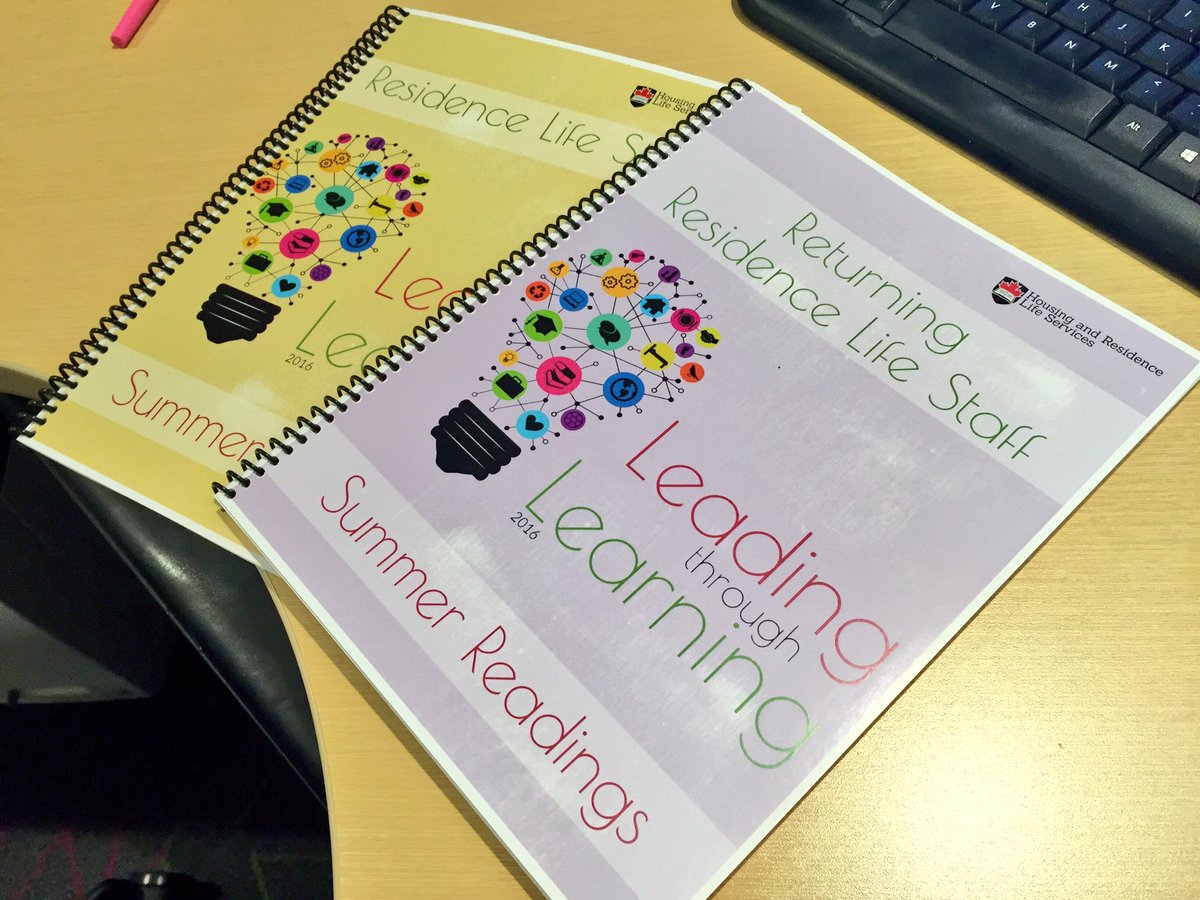 Residence Life S
Housing
Life Serv
Lea
Lea
2016
Summer
Returning
Residence Life Staff
Housing and Residence
Life Services
Leading
through
Learning
2016
Summer Readings
V
B
N
M
H
J
K
I
<
>
Alt